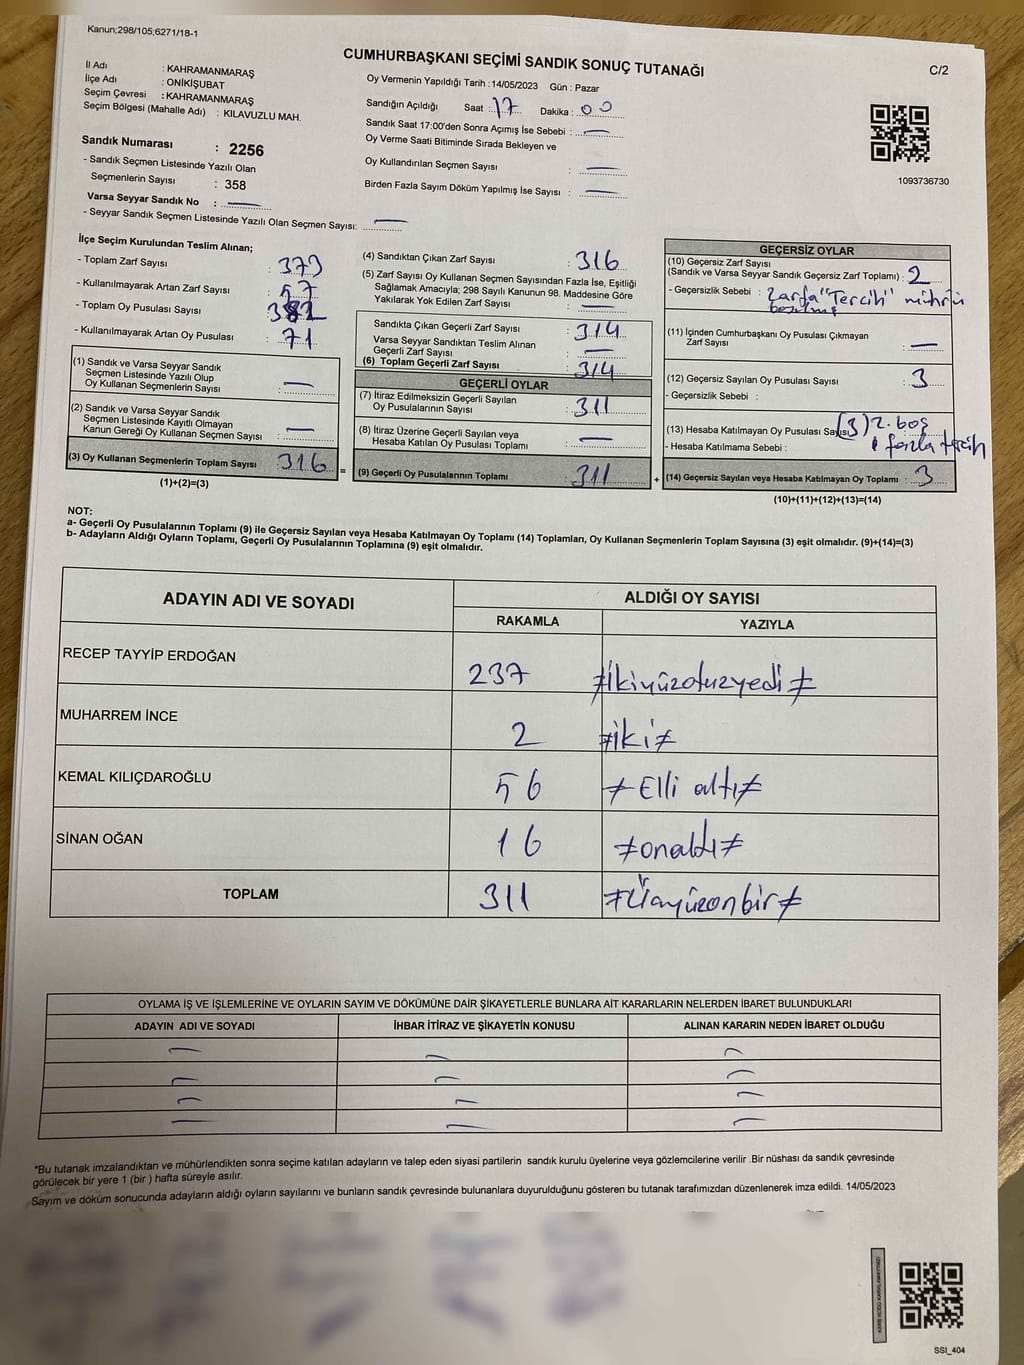 Kanun;298/105;6271/18-1
CUMHURBAŞKANI SEÇİMİ SANDIK SONUÇ TUTANAĞI
C/2
İl Adı : KAHRAMANMARAŞ
İlçe Adı : ONİKİŞUBAT
Seçim Çevresi : KAHRAMANMARAŞ
Seçim Bölgesi (Mahalle Adı) : KILAVUZLU MAH.
Oy Vermenin Yapıldığı Tarih :14/05/2023 Gün : Pazar
Sandığın Açıldığı Saat : 17 Dakika : 00
Sandık Saat 17:00'den Sonra Açımış İse Sebebi : —
Oy Verme Saati Bitiminde Sırada Bekleyen ve
Oy Kullandırılan Seçmen Sayısı : —
Birden Fazla Sayım Döküm Yapılmış İse Sayısı : —
1093736730
Sandık Numarası : 2256
- Sandık Seçmen Listesinde Yazılı Olan
Seçmenlerin Sayısı : 358
Varsa Seyyar Sandık No : —
- Seyyar Sandık Seçmen Listesinde Yazılı Olan Seçmen Sayısı: —
İlçe Seçim Kurulundan Teslim Alınan;
- Toplam Zarf Sayısı : 373
- Kullanılmayarak Artan Zarf Sayısı : 57
- Toplam Oy Pusulası Sayısı :
- Kullanılmayarak Artan Oy Pusulası : 71
(1) Sandık ve Varsa Seyyar Sandık
Seçmen Listesinde Yazılı Olup
Oy Kullanan Seçmenlerin Sayısı : —
(2) Sandık ve Varsa Seyyar Sandık
Seçmen Listesinde Kayıtlı Olmayan
Kanun Gereği Oy Kullanan Seçmen Sayısı : —
(3) Oy Kullanan Seçmenlerin Toplam Sayısı : 316
(1)+(2)=(3)
=
(4) Sandıktan Çıkan Zarf Sayısı : 316
(5) Zarf Sayısı Oy Kullanan Seçmen Sayısından Fazla İse, Eşitliği
Sağlamak Amacıyla; 298 Sayılı Kanunun 98. Maddesine Göre
Yakılarak Yok Edilen Zarf Sayısı : —
Sandıkta Çıkan Geçerli Zarf Sayısı : 314
Varsa Seyyar Sandıktan Teslim Alınan
Geçerli Zarf Sayısı : —
(6) Toplam Geçerli Zarf Sayısı : 314
GEÇERLİ OYLAR
(7) İtiraz Edilmeksizin Geçerli Sayılan
Oy Pusulalarının Sayısı : 311
(8) İtiraz Üzerine Geçerli Sayılan veya
Hesaba Katılan Oy Pusulası Toplamı : —
(9) Geçerli Oy Pusulalarının Toplamı : 311
+
GEÇERSİZ OYLAR
(10) Geçersiz Zarf Sayısı
(Sandık ve Varsa Seyyar Sandık Geçersiz Zarf Toplamı) : 2
- Geçersizlik Sebebi : Zarfa "Tercih" mührü
basılmış
(11) İçinden Cumhurbaşkanı Oy Pusulası Çıkmayan
Zarf Sayısı : —
(12) Geçersiz Sayılan Oy Pusulası Sayısı : 3
- Geçersizlik Sebebi :
(13) Hesaba Katılmayan Oy Pusulası Sayısı (3) 2. boş
- Hesaba Katılmama Sebebi : 1 fazla tercih
(14) Geçersiz Sayılan veya Hesaba Katılmayan Oy Toplamı : 3
(10)+(11)+(12)+(13)=(14)
NOT:
a- Geçerli Oy Pusulalarının Toplamı (9) ile Geçersiz Sayılan veya Hesaba Katılmayan Oy Toplamı (14) Toplamları, Oy Kullanan Seçmenlerin Toplam Sayısına (3) eşit olmalıdır. (9)+(14)=(3)
b- Adayların Aldığı Oyların Toplamı, Geçerli Oy Pusulalarının Toplamına (9) eşit olmalıdır.
ADAYIN ADI VE SOYADI
ALDIĞI OY SAYISI
RAKAMLA YAZIYLA
RECEP TAYYİP ERDOĞAN 237 ≠ikiyüzotuzyedi≠
MUHARREM İNCE 2 ≠iki≠
KEMAL KILIÇDAROĞLU 56 ≠Elli altı≠
SİNAN OĞAN 16 ≠onaltı≠
TOPLAM 311 ≠Üçyüzonbir≠
OYLAMA İŞ VE İŞLEMLERİNE VE OYLARIN SAYIM VE DÖKÜMÜNE DAİR ŞİKAYETLERLE BUNLARA AİT KARARLARIN NELERDEN İBARET BULUNDUKLARI
ADAYIN ADI VE SOYADI İHBAR İTİRAZ VE ŞİKAYETİN KONUSU ALINAN KARARIN NEDEN İBARET OLDUĞU
— — —
— — —
— — —
— — —
*Bu tutanak imzalandıktan ve mühürlendikten sonra seçime katılan adayların ve talep eden siyasi partilerin sandık kurulu üyelerine veya gözlemcilerine verilir .Bir nüshası da sandık çevresinde
görülecek bir yere 1 (bir ) hafta süreyle asılır.
Sayım ve döküm sonucunda adayların aldığı oyların sayılarını ve bunların sandık çevresinde bulunanlara duyurulduğunu gösteren bu tutanak tarafımızdan düzenlenerek imza edildi. 14/05/2023
SSI_404